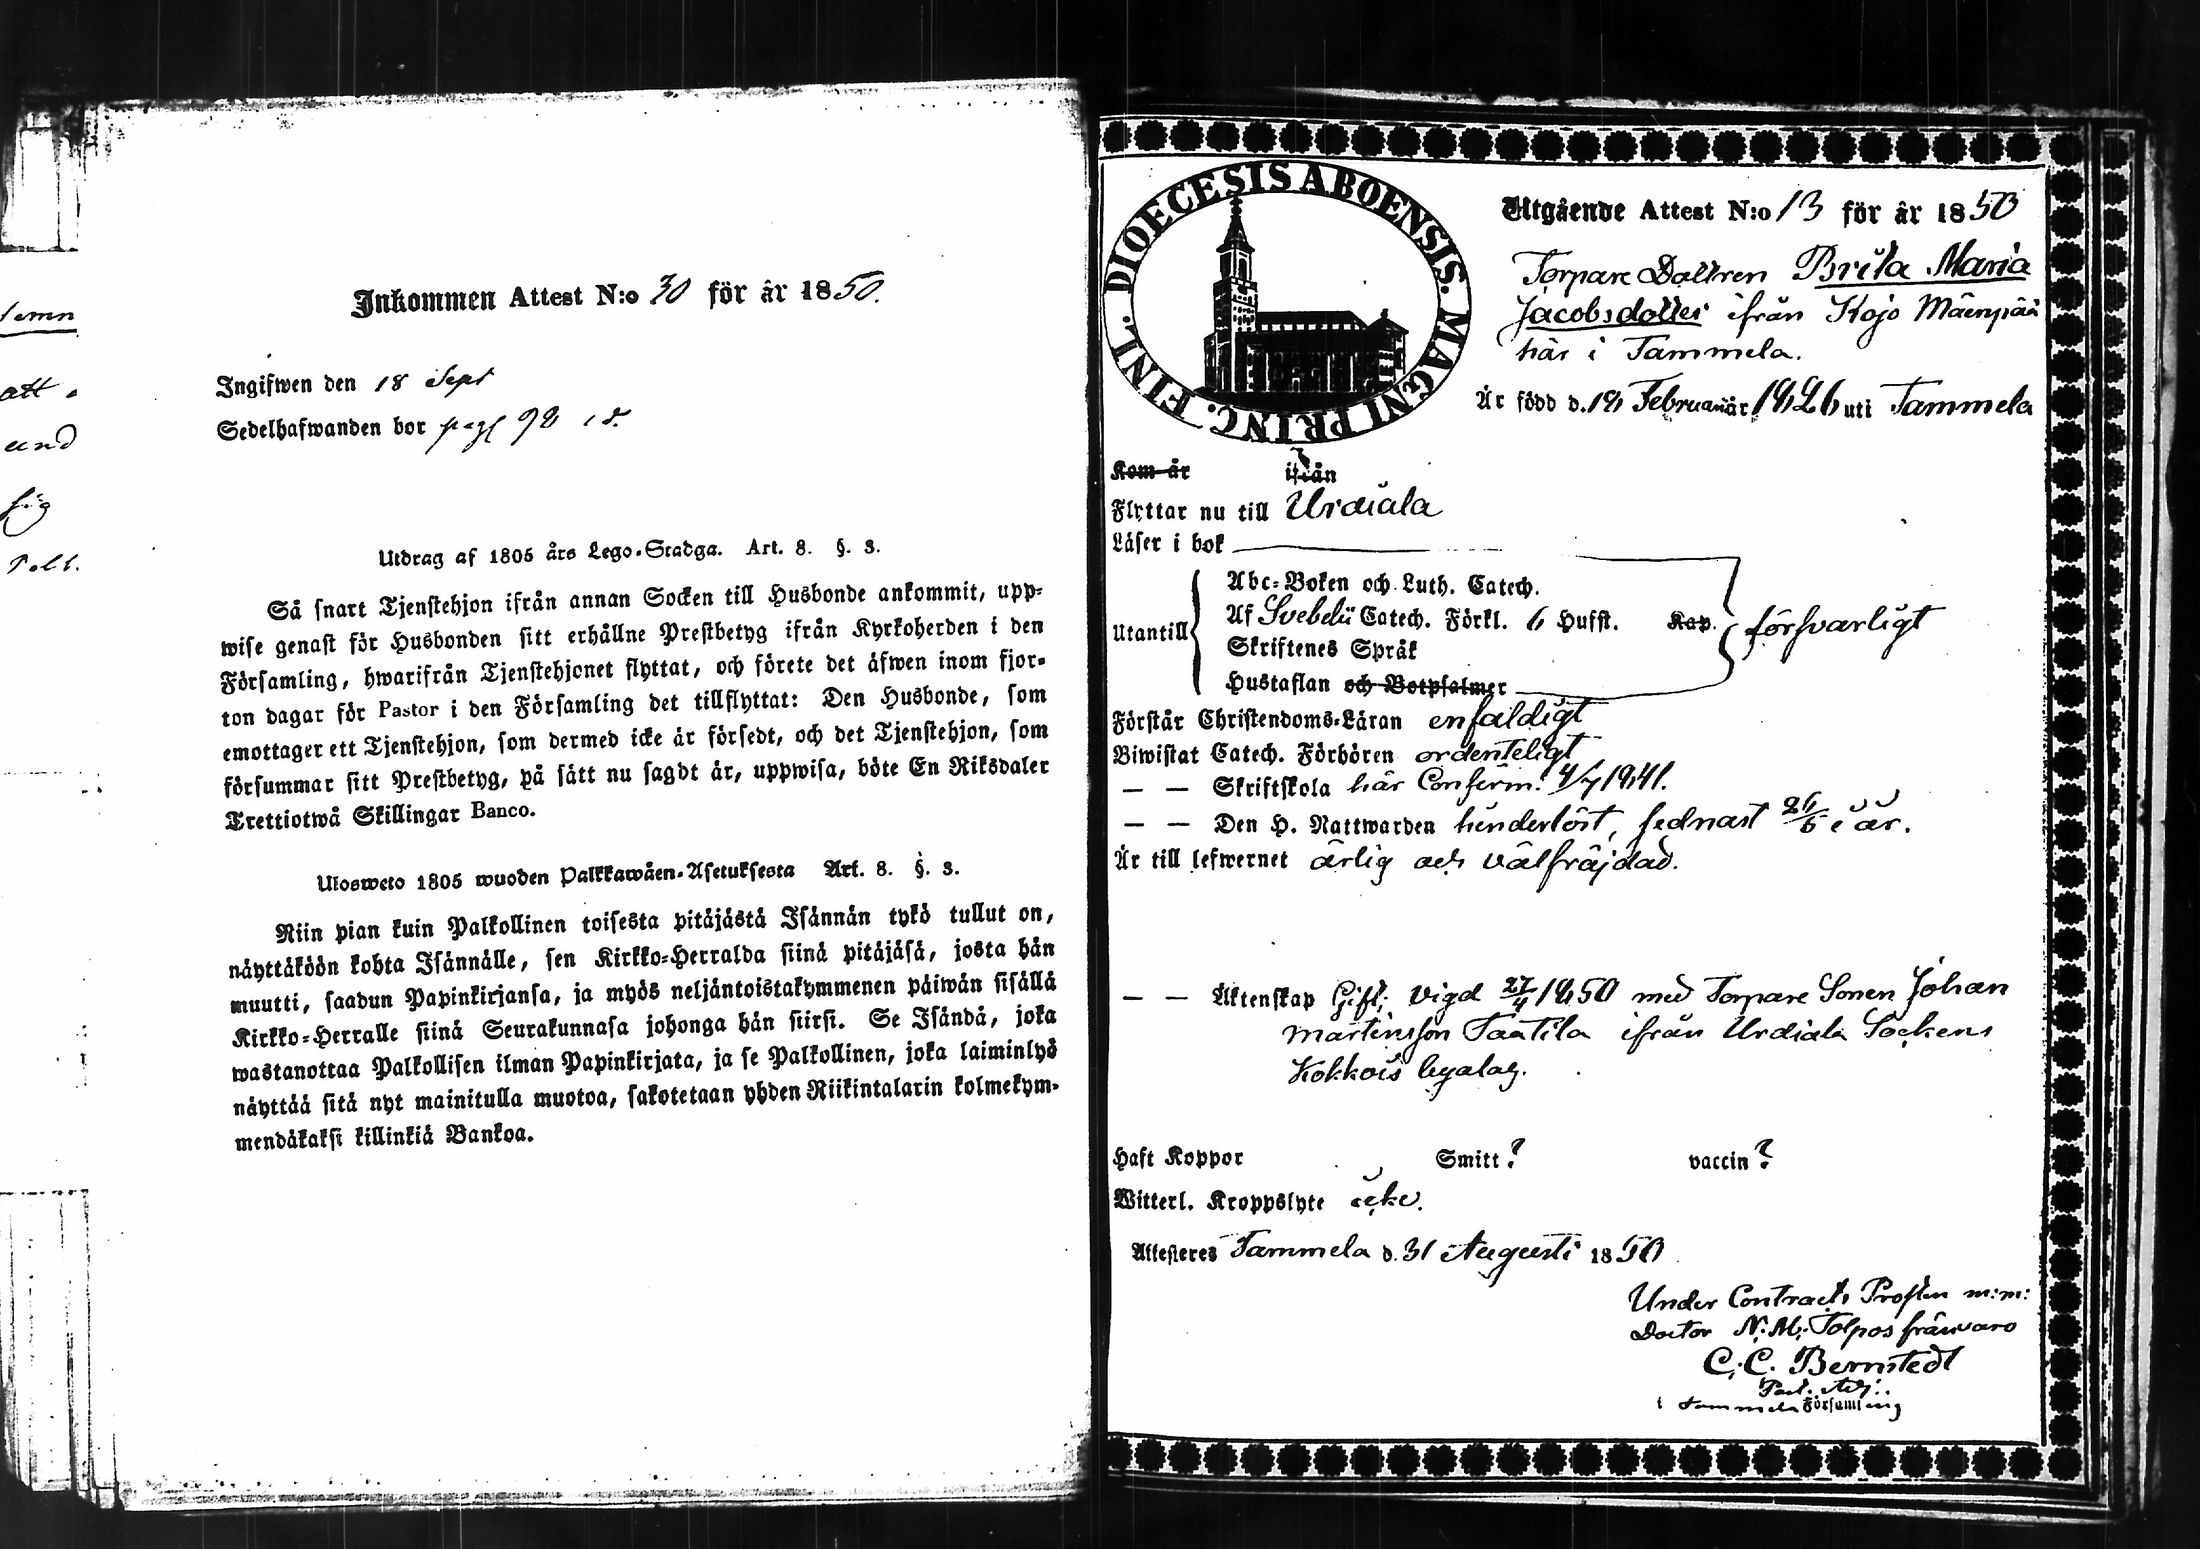 Inkommen Attest N:o 30 för år 1850.
Ingifwen den 18 Sept
Sedelhafwanden bor pag 98
Utdrag af 1805 års Lego-Stadga. Art. 8. §. 3.
Så snart Tjenstehjon ifrån annan Socken till Husbonde ankommit, upp-
wise genast för Husbonden sitt erhållne Prestbetyg ifrån Kyrkoherden i den
Församling, hwarifrån Tjenstehjonet flyttat, och förete det äfwen inom fjor-
ton dagar för Pastor i den Församling det tillflyttat: Den Husbonde, som
emottager ett Tjenstehjon, som dermed icke är försedt, och det Tjenstehjon, som
försummar sitt Prestbetyg, på sätt nu sagdt är, uppwisa, böte En Riksdaler
Trettiotwå Skillingar Banco.
Ulosweto 1805 wuoden Palkkawäen-Asetuksesta Art. 8. §. 3.
Niin pian kuin Palkollinen toisesta pitäjästä Isännän tykö tullut on,
näyttäköön kohta Isännälle, sen Kirkko-Herralda siinä pitäjäsä, josta hän
muutti, saadun Papinkirjansa, ja myös neljäntoistakymmenen päiwän sisällä
Kirkko-Herralle siinä Seurakunnasa johonga hän siirsi. Se Isändä, joka
wastanottaa Palkollisen ilman Papinkirjata, ja se Palkollinen, joka laiminlyö
näyttää sitä nyt mainitulla muotoa, sakotetaan yhden Riikintalarin kolmekym-
mendäkaksi killinkiä Bankoa.
DIOECESIS ABOENSIS. MAGNI PRINC. FINL.
Utgående Attest N:o 13 för år 1850
Torpare Dottren Brita Maria
Jacobsdotter ifrån Kojo Mäenpää
här i Tammela.
Är född d. 18 Februari år 1826 uti Tammela
Kom år ifrån
Flyttar nu till Urdiala
Läser i bok
Utantill
Abc-Boken och Luth. Catech.
Af Svebelii Catech. Förkl. 6 Hufst. Kap.
Skriftenes Språk
Hustaflan och Botpsalmer
försvarligt
Förstår Christendoms-Läran enfaldigt
Biwistat Catech. Förhören ordenteligt
— — Skriftskola här Confirm. 4/7 1841.
— — Den H. Nattwarden hinderlöst, sednast 26/5 i år.
Är till lefwernet ärlig och välfräjdad.
— — Äktenskap Gift; vigd 27/4 1850 med Torpare Sonen Johan
Martinsson Taatila ifrån Urdiala Sockens
Kokkois byalag.
Haft Koppor Smitt? vaccin?
Witterl. Kroppslyte icke.
Attesteres Tammela d. 31 Augusti 1850
Under Contracts Prosten m:m:
Doctor N: M: Tolpos frånvaro
C. C. Bernstedt
Past. Adj.
i Tammela Församling